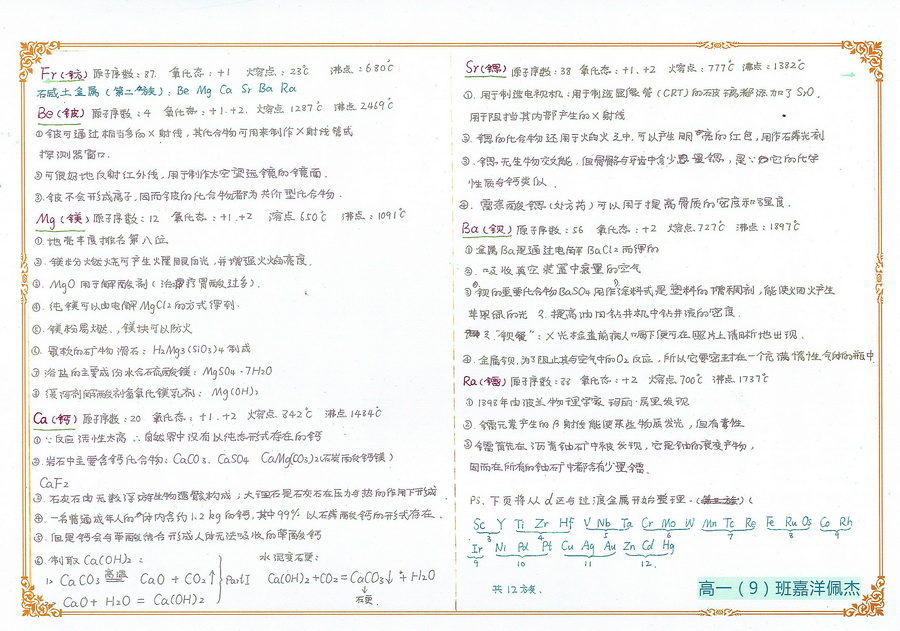 Fr(钫) 原子序数:87. 氧化态:+1 火容点:23℃ 沸点:680℃
石咸土金属(第二族): Be Mg Ca Sr Ba Ra
Be(铍) 原子序数:4 氧化态:+1.+2. 火容点1287℃ 沸点2469℃
①铍可通过相当多的X射线,其化合物可用来制作X射线管或
探测器窗口.
②可很好地反射红外线,用于制作太空望远镜的镜面.
③.铍不会形成离子,因而铍的化合物都为共价型化合物.
Mg(镁)原子序数:12 氧化态:+1.+2 溶点650℃ 沸点:1091℃
①.地壳丰度排名第八位
②.镁粉火燃烧可产生火耀眼白光,并增强火焰亮度.
③. MgO 用于解酸剂(治胃酸过多).
④.纯镁可以由电解MgCl2的方式得到.
⑤.镁粉易燃.,镁块可以防火
⑥.最软的矿物滑石:H2Mg3(SiO3)4制成
⑦浴盐的主要成份水合石硫酸镁:MgSO4·7H2O
⑧缓泻剂解酸剂含氧化镁乳剂: Mg(OH)2
Ca(钙)原子序数:20 氧化态:+1.+2 火容点.842℃ 沸点1484℃
①∵反应活性太高∴自然界中没有以纯态形式存在的钙
②.岩石中主要含钙化合物:CaCO3. CaSO4 CaMg(CO3)2(石炭酸钙镁)
CaF2
③.石灰石由无数浮游生物遗骸构成;大理石是石灰石在压力与热的作用下形成
④.一名普通成年人的体内含约1.2kg的钙,其中99%以石磷酸钙的形式存在.
⑤.但是钙会与草酸结合形成人体无法吸收的草酸钙
⑥.制取Ca(OH)2: 水泥变石更:
1> CaCO3 高温 CaO + CO2↑ } Part I Ca(OH)2+CO2=CaCO3↓+H2O
CaO + H2O = Ca(OH)2 石更.
Sr(锶) 原子序数:38 氧化态:+1.+2 火容点:777℃ 沸点:1382℃
①.用于制造电视机:用于制造显像管(CRT)的石皮璃都添加了SrO.
用于阻挡其内部产生的X射线
②.锶的化合物还用于烟火之中.可以产生明亮的红色,用作石磷光剂
③.锶无生物效能,但骨骼与牙齿中含少量锶,是∵它的化学
性质与钙类似.
④.雷奈酸锶(处方药)可以用于提高骨质的密度和强度.
Ba(钡)原子序数:56 氧化态:+2 火容点.727℃ 沸点:1897℃
①金属Ba是通过电解BaCl2而得的
②.吸收真空装置中衰量的空气
③钡的重要化合物BaSO4用作涂料或是塑料的稠剂,能使烟火产生
苹果绿的光 2.提高油田钻井机中钻井液的密度.
3."钡餐":X光检查前病人喝下便可在照片上清晰地出现.
④.金属钡,为了阻止其与空气中的O2反应,所以它要密封在一个充满惰性气体的瓶中
Ra(镭)原子序数:88 氧化态:+2 火容点700℃ 沸点1737℃
①1898年由波兰物理学家玛丽·居里发现
②.镭元素产生的β射线能使某些物质发光,但有毒性
③镭首先在沥青铀矿中被发现,它是铀的衰变产物,
因而在所有的铀石矿中都含有少量镭.
Ps.下页将从d区与过渡金属开始整理.
Sc Y Ti Zr Hf V Nb Ta Cr Mo W Mn Tc Re Fe Ru Os Co Rh
3 4 5 6 7 8 9
Ir Ni Pd Pt Cu Ag Au Zn Cd Hg
9 10 11 12.
共12方族.
高一(9)班嘉洋佩杰